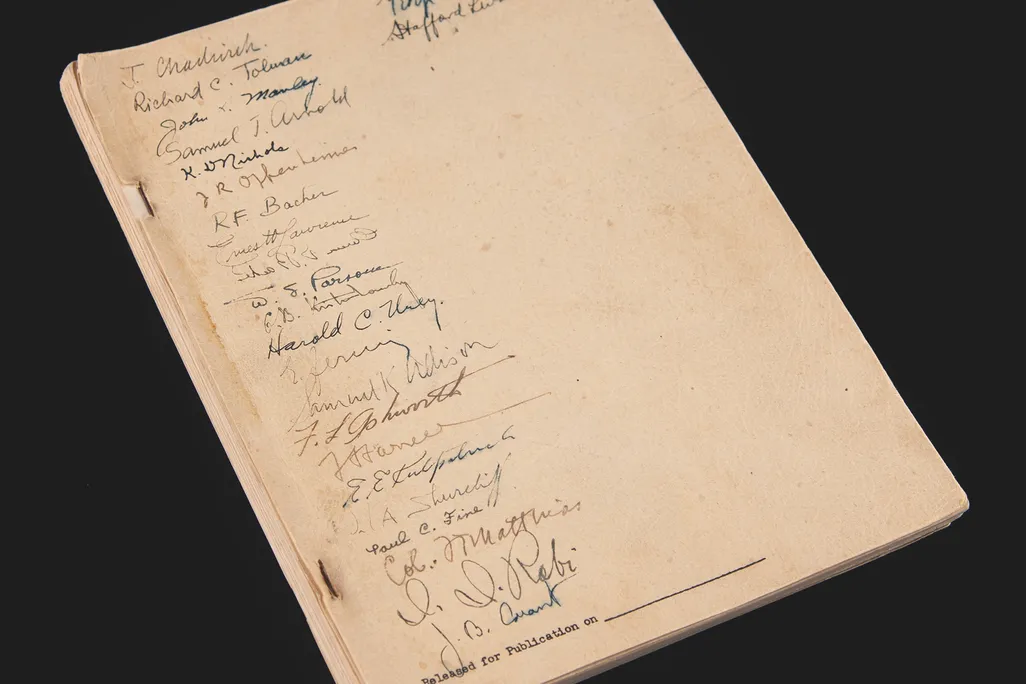 Stafford
J. Chadwick.
Richard C. Tolman
John Manley.
Samuel T. Arnold
K. D. Nichols
J R Oppenheimer
R.F. Bacher
Ernest Lawrence
W. S. Parsons
Harold C. Urey.
E. Fermi
Samuel K Allison
F. L. Ashworth
E. E. Kirkpatrick
Paul C. Fine
Col. Matthias
I. I. Rabi
J. B. Conant
Released for Publication on